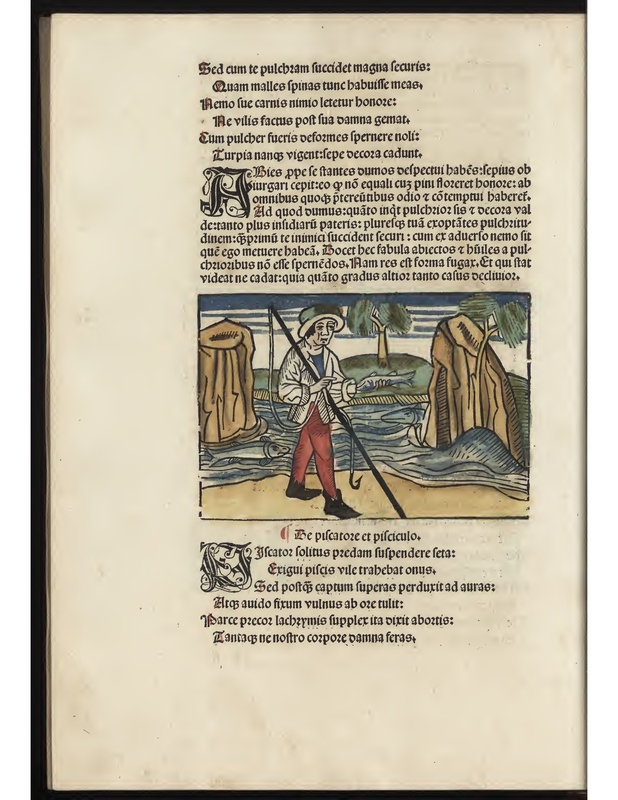 Sed cum te pulchram succidet magna securis:
Quam malles spinas tunc habuisse meas.
Nemo sue carnis nimio letetur honore:
Ne vilis factus post sua damna gemat.
Cum pulcher fueris deformes spernere noli:
Turpia nanqꝫ vigent: sepe decora cadunt.
ABies ꝓpe se stantes dumos despectui habēs: sepius ob
iurgari cepit: eo ꝙ nō equali cuꝫ pini floreret honore: ab
omnibus quoqꝫ p̄tereūtibus odio ⁊ cōtemptui haberet.
Ad quod dumus: quāto inq̇t pulchrior sis ⁊ decora val
de: tanto plus insidiarū pateris: pluresqꝫ tuā exoptātes pulchritu-
dinem: ꝙ̄primū te inimici succident securi: cum ex aduerso nemo sit
quē ego metuere habeā. Docet hec fabula abiectos ⁊ hūiles a pul-
chrioribus nō esse spernēdos. Nam res est forma fugax. Et qui stat
videat ne cadat: quia quāto gradus altior tanto casus decliuior.
¶ De piscatore et pisciculo.
PIscator solitus predam suspendere seta:
Exigui piscis vile trahebat onus.
Sed postꝙ̄ captum superas perduxit ad auras:
Atqꝫ auido fixum vulnus ab ore tulit:
Parce precor lachrymis supplex ita dixit abortis:
Tantaqꝫ ne nostro corpore damna feras.